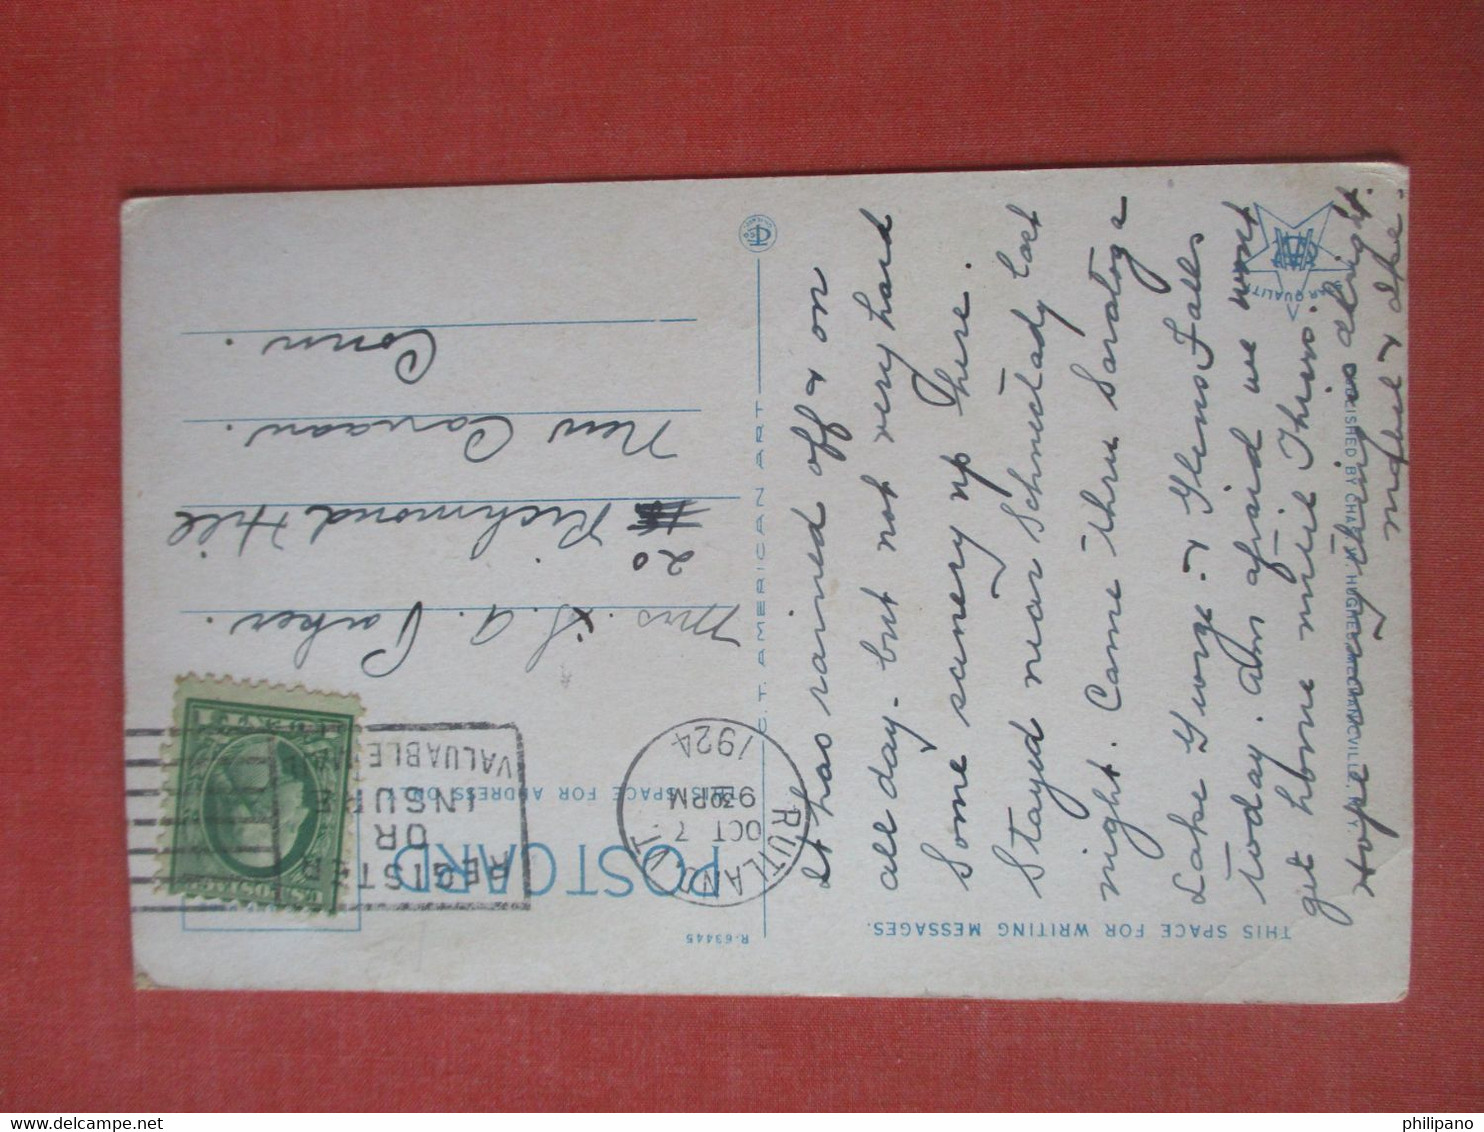 THIS SPACE FOR WRITING MESSAGES.
R-63445
POST CARD
THIS SPACE FOR ADDRESS ONLY
RUTLAND VT.
OCT 7
930 PM
1924
REGISTER
OR
INSURE
VALUABLE MAIL
U.S. POSTAGE
Mrs. S. A. Parker.
20 Richmond Hill
New Canaan.
Conn.
C. T. AMERICAN ART
It has rained off & on
all day - but not very hard
Some scenery up here.
Stayed near Schnectady last
night. Came thru Saratoga
Lake George. & Glens Falls
today. Am afraid we wont
get home until Thurs.
Hope everything is alright.
Mabel &
PUBLISHED BY CHAS. W. HUGHES, MECHANICVILLE, N.Y.
STAR QUALITY
philipano